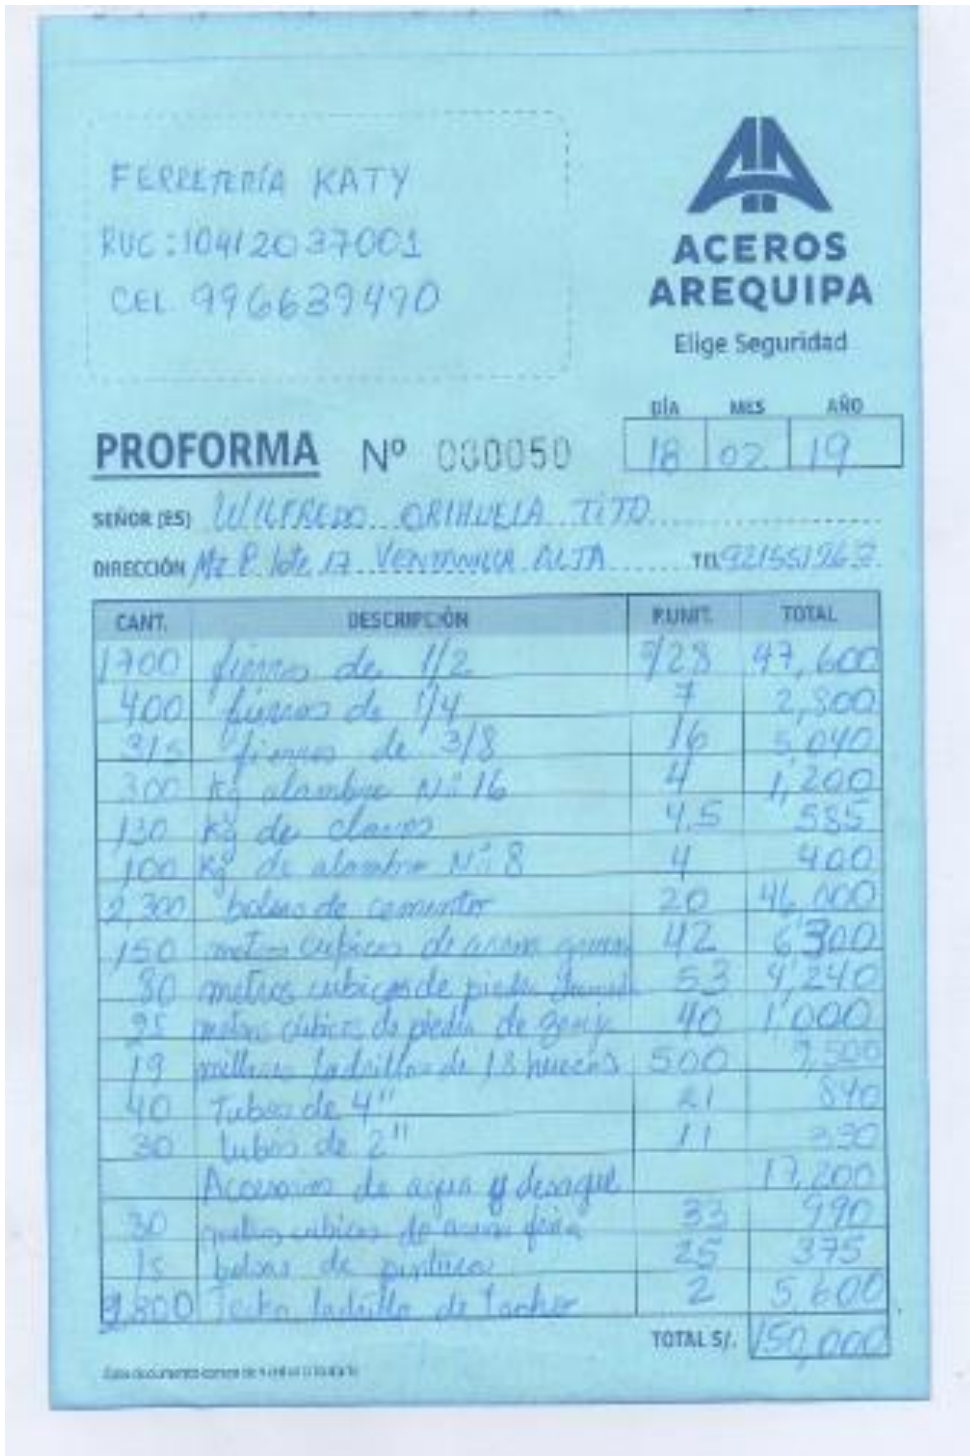 FERRETERÍA KATY
RUC: 10412037001
CEL. 996639490
ACEROS
AREQUIPA
Elige Seguridad
DÍA MES AÑO
18 02 19
PROFORMA Nº 000050
SEÑOR (ES) WILFREDO ORIHUELA TITO
DIRECCIÓN Mz P lote 17 VENTANILLA ALTA TEL. 921551967
CANT. DESCRIPCIÓN P.UNIT. TOTAL
1700 fierros de 1/2 S/28 47,600
400 fierros de 1/4 7 2,800
315 fierros de 3/8 16 5,040
300 kg alambre Nº 16 4 1,200
130 kg de clavos 4.5 585
100 kg de alambre Nº 8 4 400
2,300 bolsas de cemento 20 46,000
150 metros cubicos de arena gruesa 42 6,300
80 metros cubicos de piedra 53 4,240
25 metros cubicos de piedra de 40 1'000
19 millares ladrillos de 18 huecos 500 9,500
40 Tubos de 4" 21 840
30 tubos de 2" 11 330
Accesorios de agua y desague 17,200
30 metros cubicos de arena fina 33 990
15 bolsas de 25 375
2,800 ladrillo de 2 5,600
TOTAL S/. 150,000